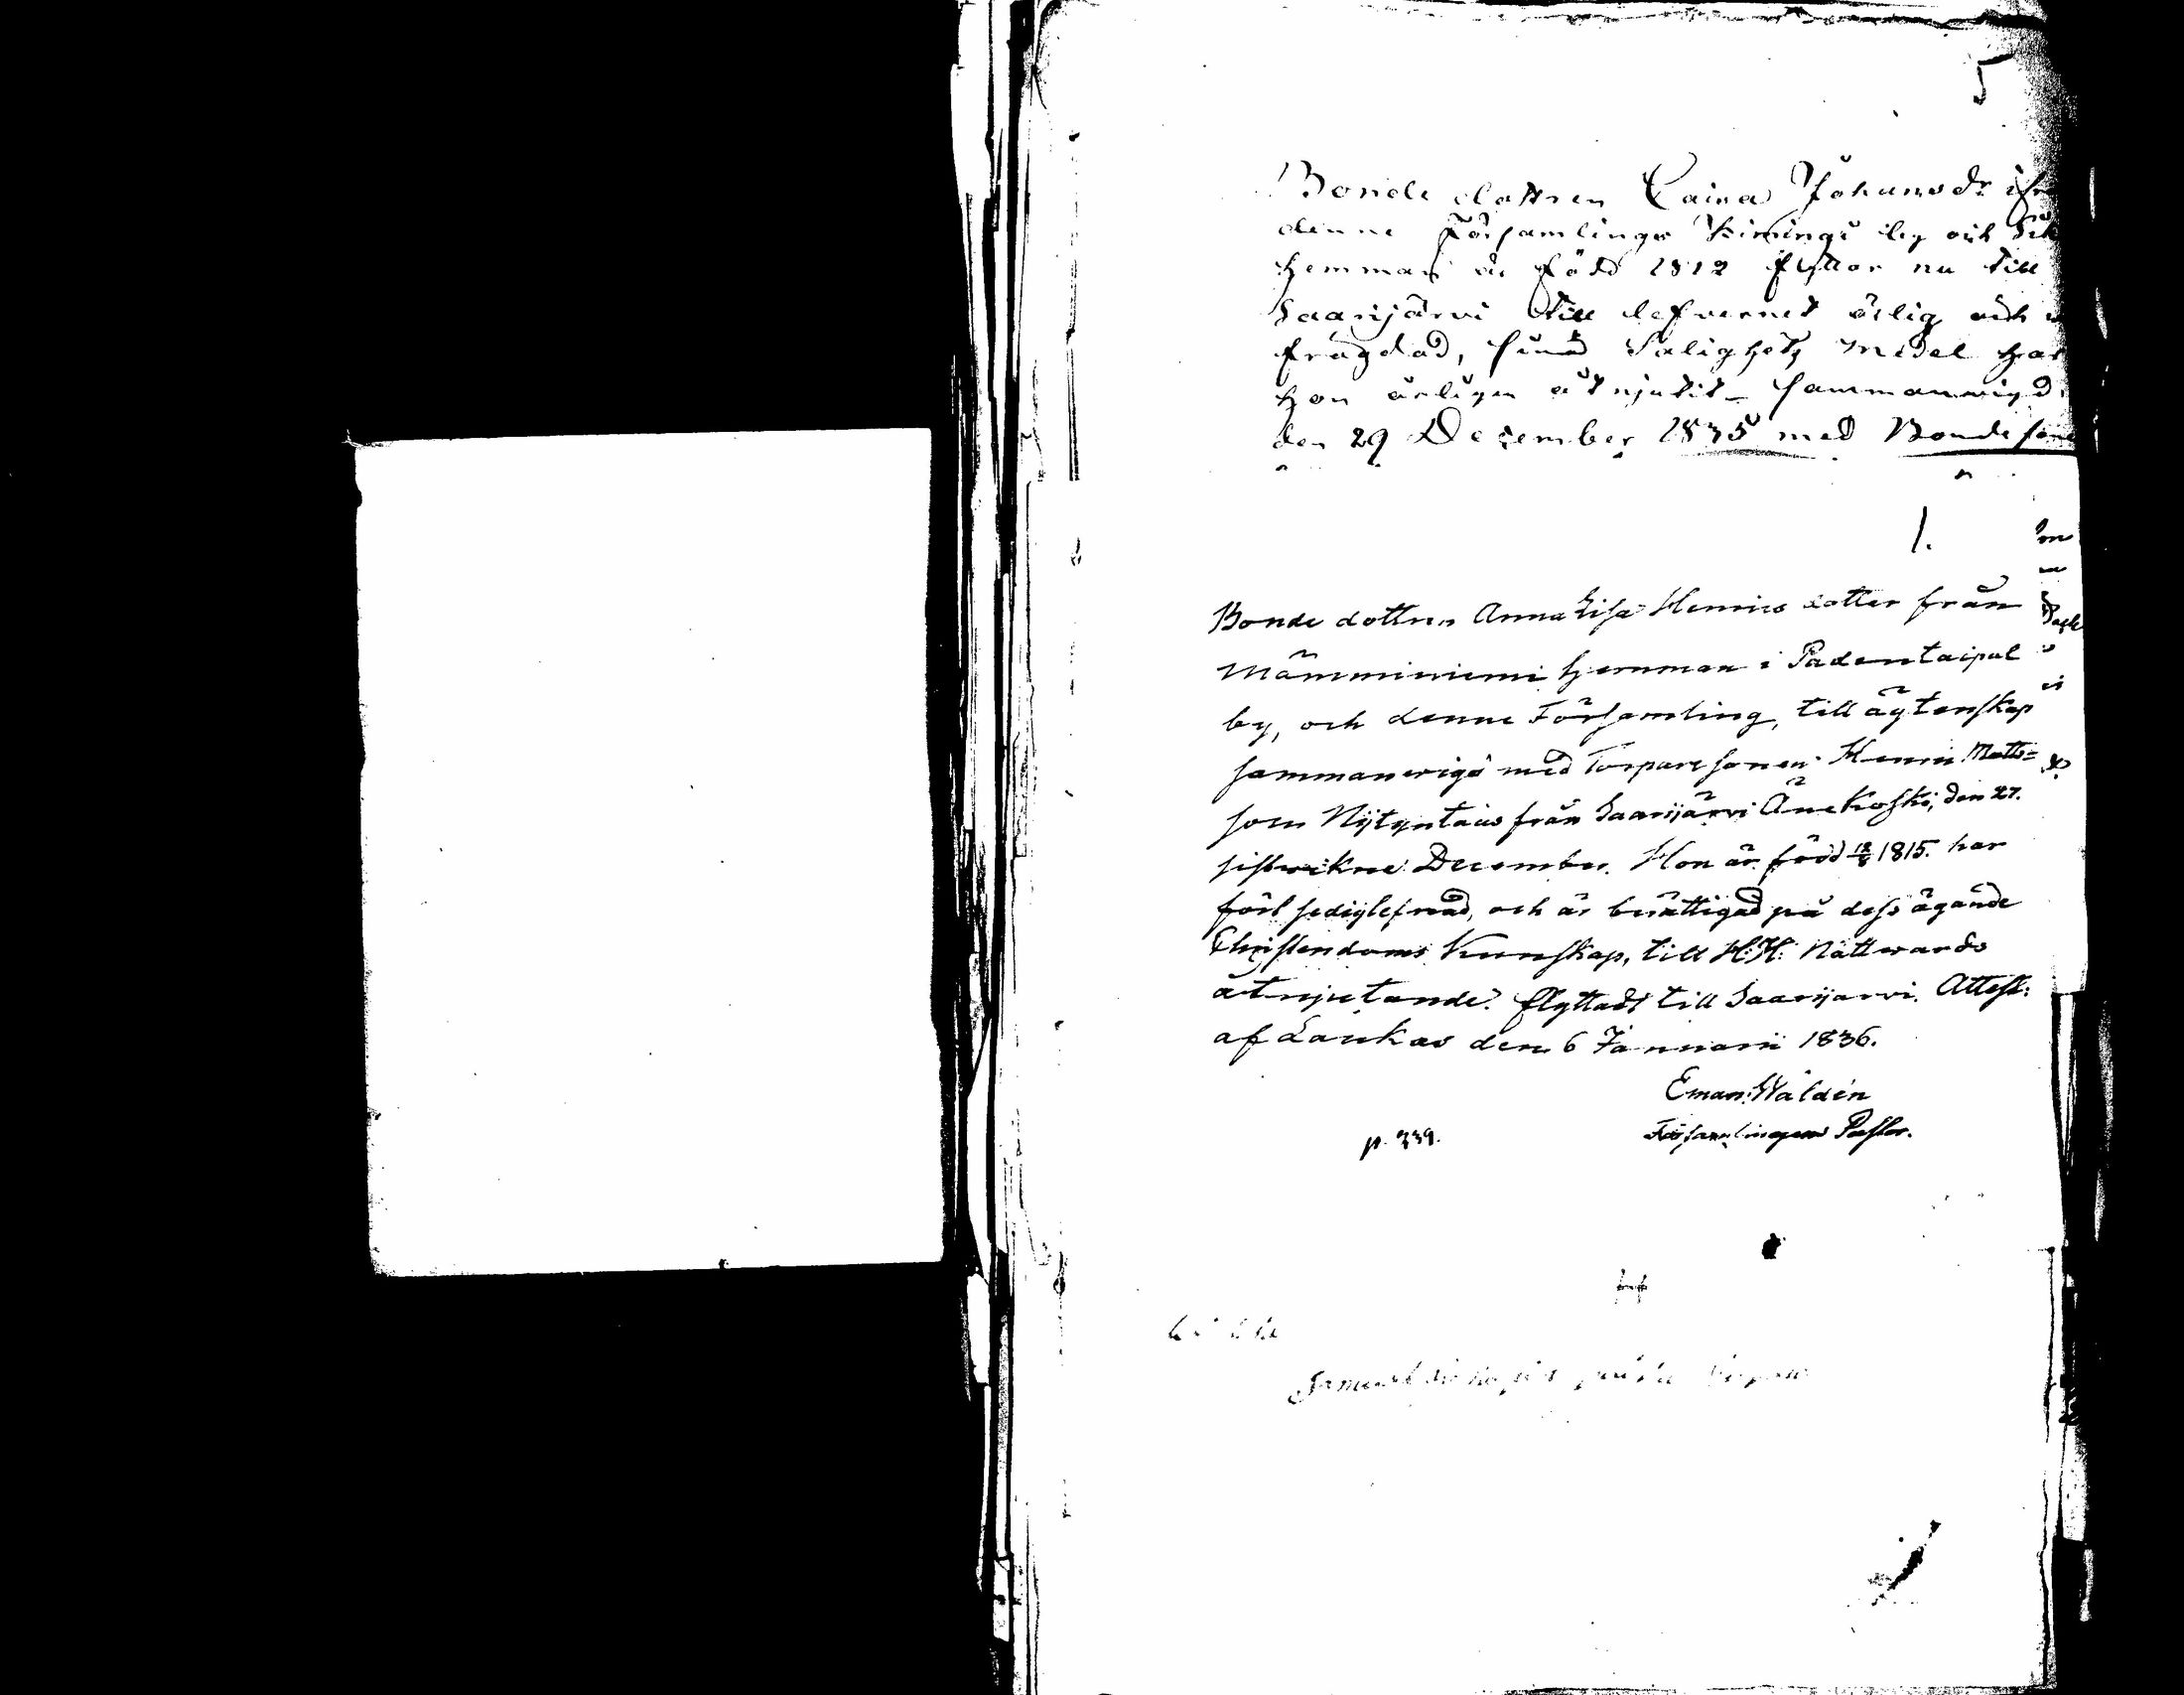 5
Bonde dottren Caisa Johansdr ifrån
denne Församlings Kiminge by och
Hemman är född 1812 flyttar nu till
Saarijärvi till lefvernet ärlig och
frägdad, sina Salighets medel har
hon ärligen åtnjutit - sammanwigd
den 29 December 1835 med Bonde sone
1.
Bonde dottren Anna Lisa Henrics dotter från
Mämminiemi hemman i Padentaipal
by, och denne Församling, till ägtenskap
sammanwigd med Torpare sonen Henric Matts=
son Nytyntaus från Saarijärvi Änekoski, den 27.
sistwikne December. Hon är född 1815. har
fört sediglefnad, och är berättigad på dess ägande
Christendoms Kunskap, till H:H: Nattwards
åtnjutande. Flyttade till Saarijärvi. Attest:
af Laukas den 6 Januarii 1836.
Eman: Waldén
Församlingens Pastor.
p. 339.